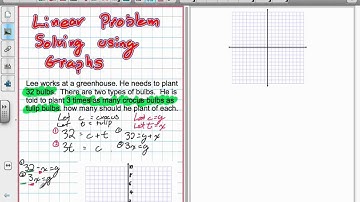 Linear Problem
Solving using
Graphs
Lee works at a greenhouse. He needs to plant
32 bulbs. There are two types of bulbs. He is
told to plant 3 times as many crocus bulbs as
tulip bulbs. how many should he plant of each.
Let c = crocus Let c=y
Let t = tulip Let t=x
① 32 = c+t ① 32=y+x
② 3t = c ② 3x=y
① 32-x=y
② 3x=y